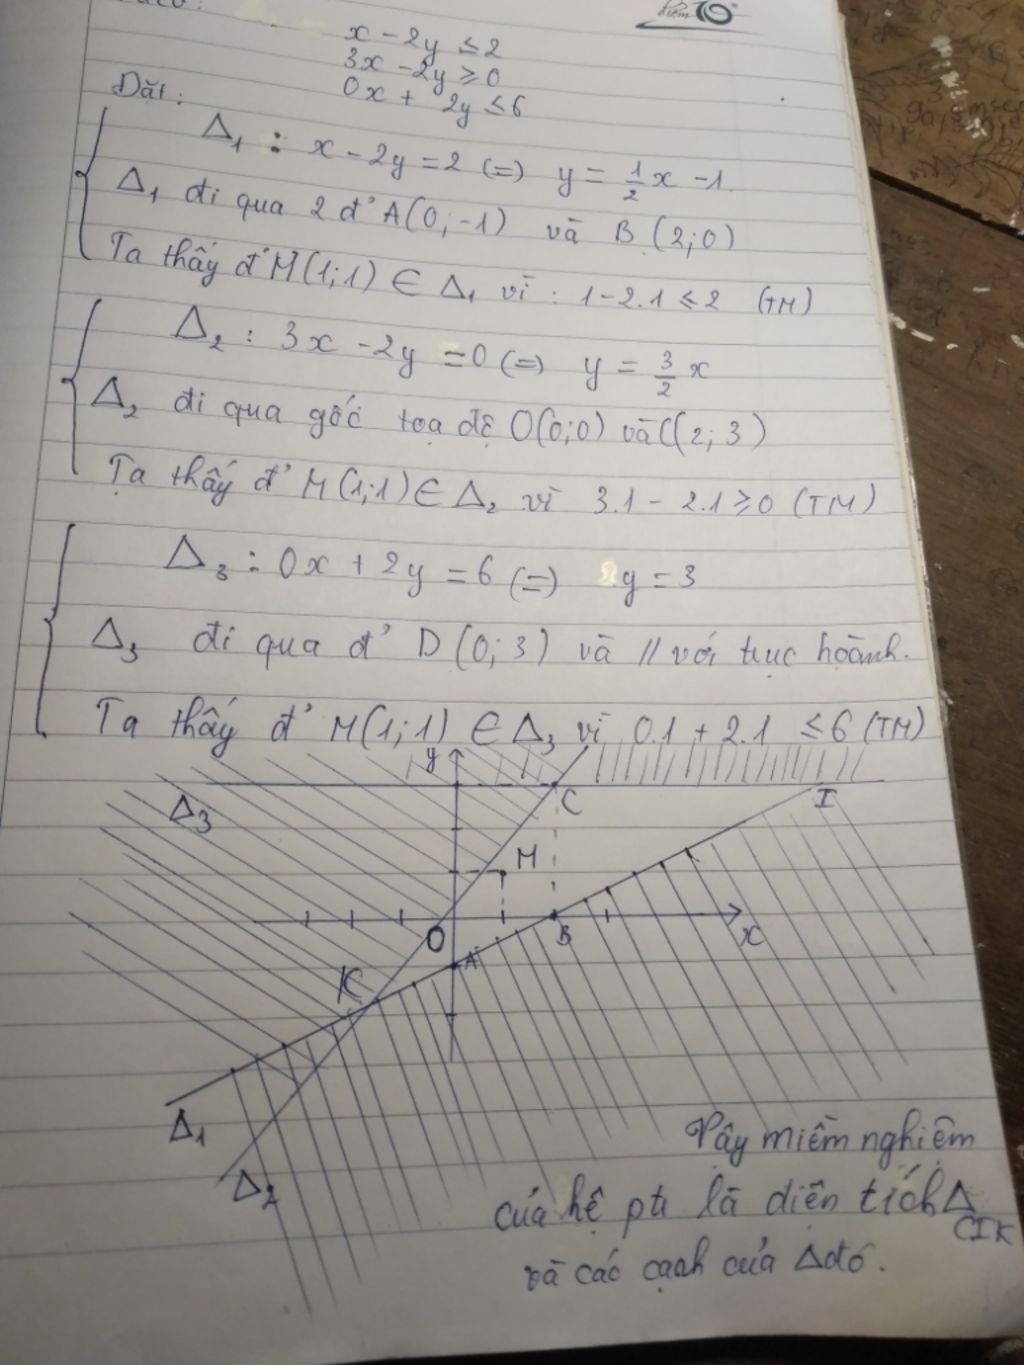 x - 2y ≤ 2
3x - 2y ≥ 0
0x + 2y ≤ 6
Đặt:
Δ₁ : x - 2y = 2 (=) y = 1/2 x - 1.
Δ₁ đi qua 2 đ' A(0;-1) và B (2;0)
Ta thấy đ' M(1;1) ∈ Δ₁ vì : 1-2.1 ≤ 2 (TM)
Δ₂ : 3x - 2y = 0 (=) y = 3/2 x
Δ₂ đi qua gốc toạ độ O(0;0) và C(2;3)
Ta thấy đ' M(1;1) ∈ Δ₂ vì 3.1 - 2.1 ≥ 0 (TM)
Δ₃ : 0x + 2y = 6 (=) y = 3
Δ₃ đi qua đ' D (0;3) và // với trục hoành.
Ta thấy đ' M(1;1) ∈ Δ₃ vì 0.1 + 2.1 ≤ 6 (TM)
y
Δ₃ C I
M
O B x
K A
Δ₁
Δ₂
Vậy miền nghiệm
của hệ pt là diện tích Δ CIK
và các cạnh của Δ đó.